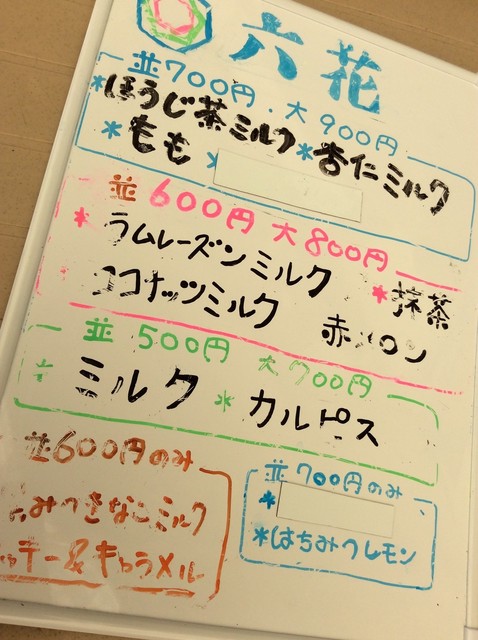 六花
並700円・大900円
*ほうじ茶ミルク *杏仁ミルク
*もも *
並600円 大800円
*ラムレーズンミルク *抹茶
ココナッツミルク 赤メロン
並500円 大700円
ミルク *カルピス
並600円のみ
みつきなこミルク
ッチー&キャラメル
並700円のみ
*
*はちみつレモン